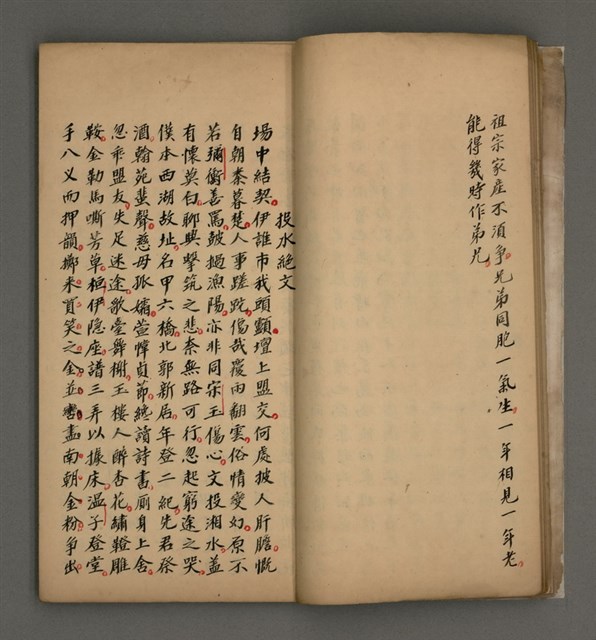 祖宗家產不須爭兄弟同胞一氣生一年相見一年老
能得幾時作弟兄
投水絕文
場中結契伊誰市我頭顱壇上盟交何處披人肝膽慨
自朝秦暮楚人事蹉跎傷哉覆雨翻雲俗情變幻原不
若彌衡善罵鼓過漁陽亦非同宗玉傷心文投湘水蓋
有懷莫白聊興擊筑之悲奈無路可行忽起窮途之哭
僕本西湖故址名甲六橋北郭新居年登二紀先君祭
酒翰苑蜚聲慈母孤孀萱幃貞節總讀詩書厠身上舍
忽乖盟友失足迷途歌臺舞榭玉樓人醉杏花繡鞳雕
鞍金勒馬嘶芳草桓伊隱座譜三弄以據床溫子登堂
手八乂而押韻擲來買笑之金並嚮畫南朝金粉爭出